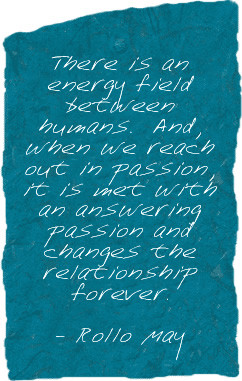 There is an
energy field
between
humans. And,
when we reach
out in passion,
it is met with
an answering
passion and
changes the
relationship
forever.
- Rollo May